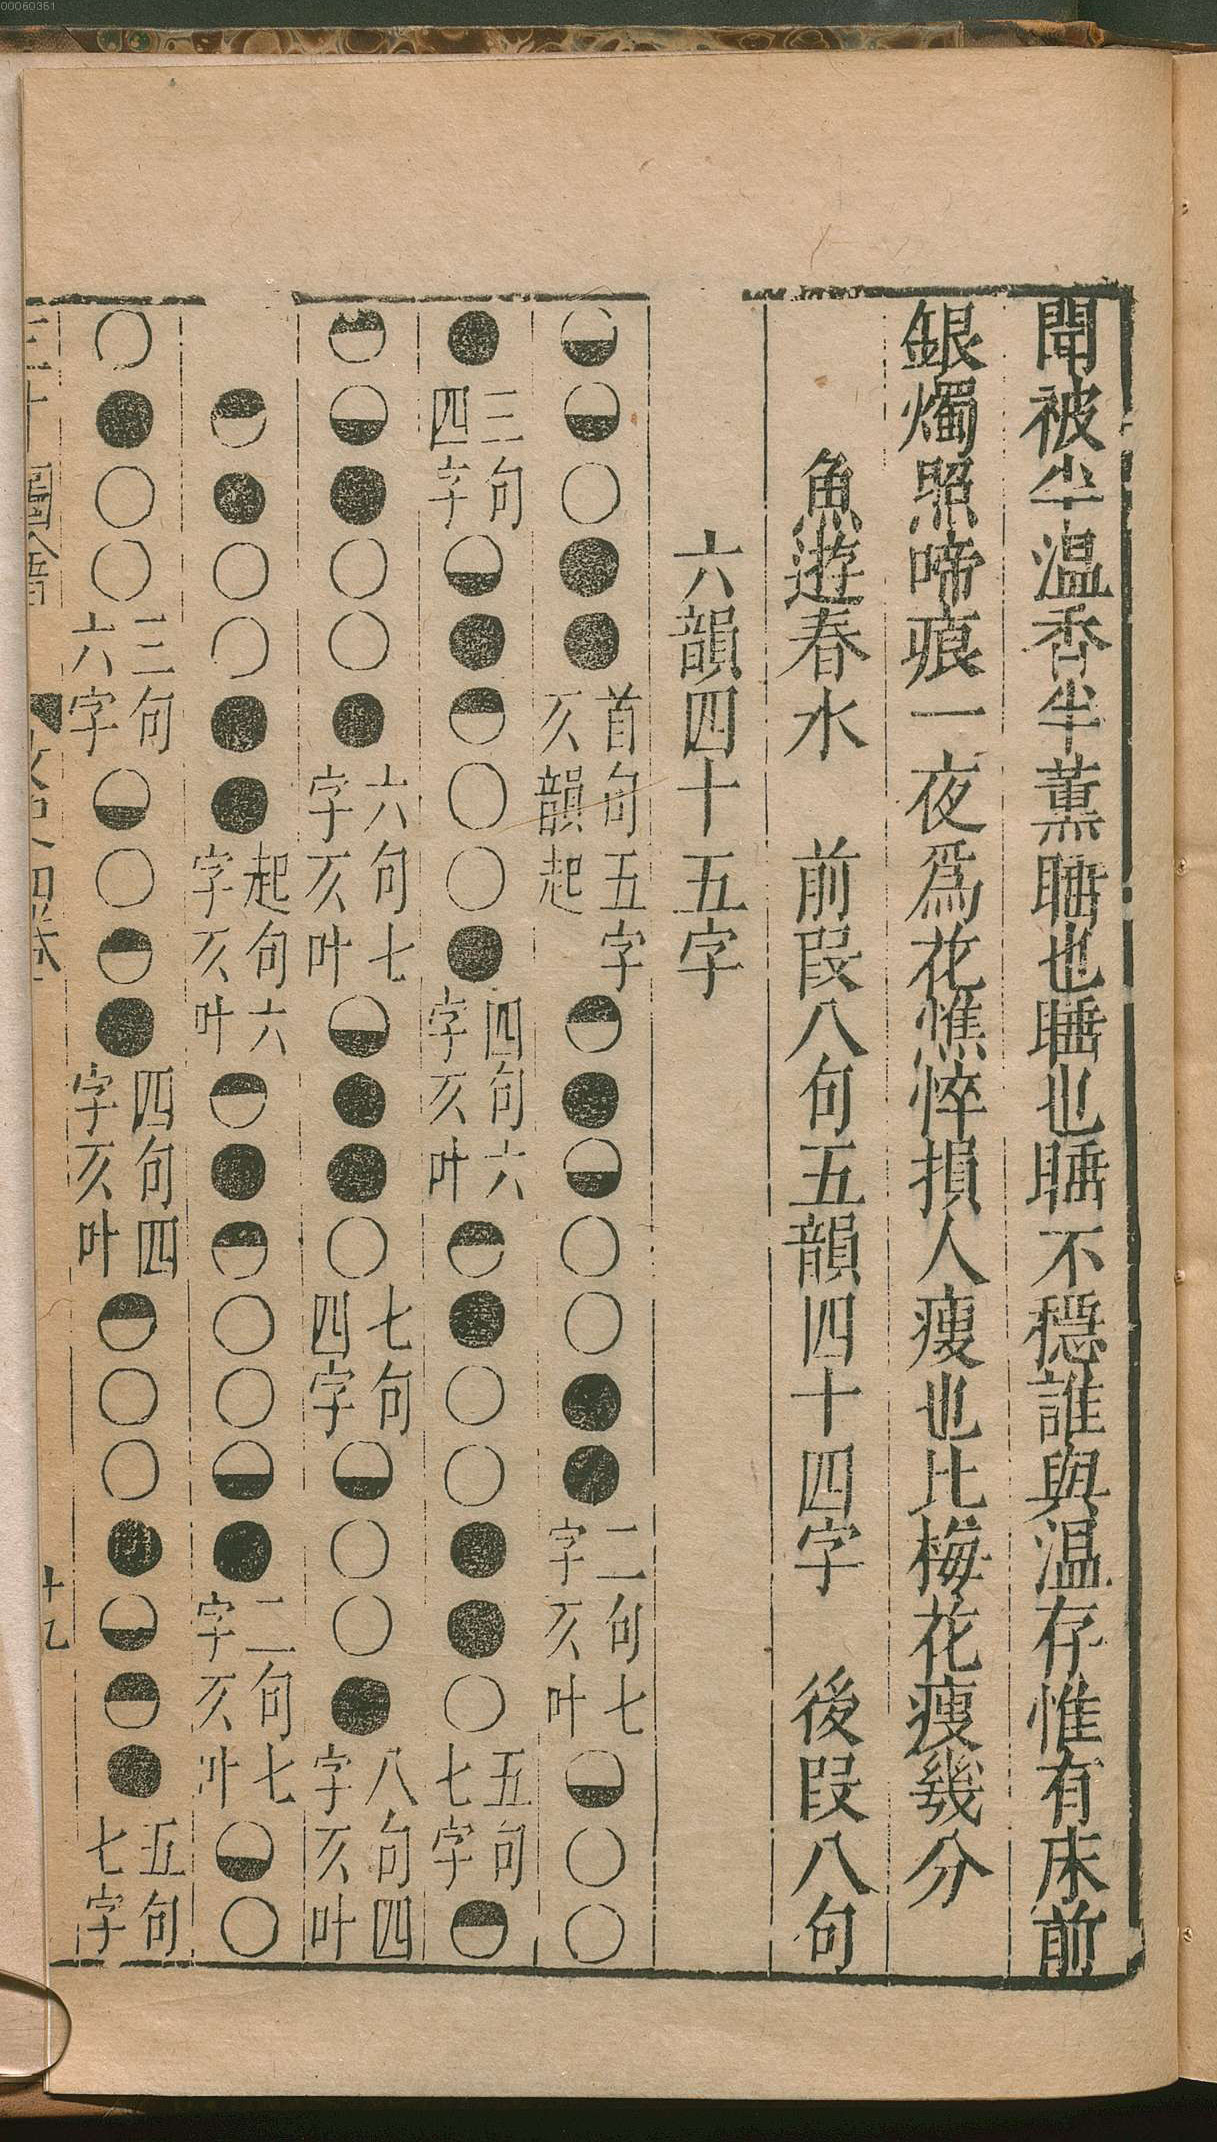 聞被半温香半薰睡也睡也睡不穩誰與温存惟有床前
銀燭照啼痕一夜爲花憔悴損人瘦也比梅花瘦幾分
魚遊春水　前段八句五韻四十四字　後段八句
六韻四十五字
◒◒○●●首句五字仄韻起◓●◒○○●●二句七字仄叶◒○○
●三句四字◒●◓○○●四句六字仄叶◓●○○●●○五句七字◓
◓◒●○○●六句七字仄叶◒●●○七句四字◒○○●八句四字仄叶
◓●○○●●起句六字仄叶◓●◓○○◒●二句七字仄叶◒○
○●○○三句六字◒○◓●四句四字仄叶◓○○●◒◓●五句七字
00060361